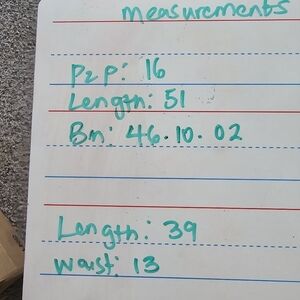 measurements
P2P: 16
Length: 51
Bm: 46.10.02
Length: 39
waist: 13